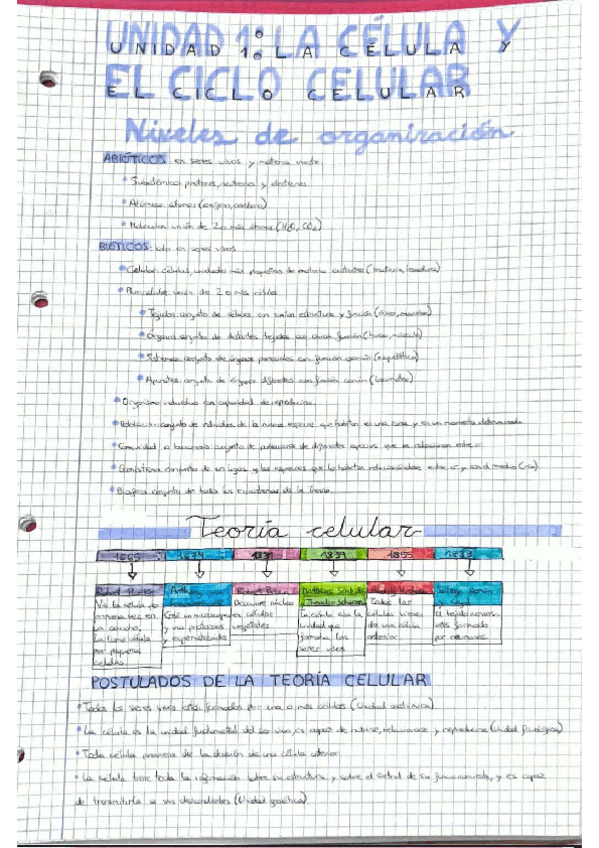 UNIDAD 1: LA CÉLULA Y
EL CICLO CELULAR
Niveles de organización
ABIÓTICOS: en seres vivos y materia inerte.
Subatómico: protones, neutrones y electrones
Atómico: átomos (oxígeno, carbono)
Molecular: unión de 2 o más átomos (H₂O, CO₂)
BIÓTICOS: solo en seres vivos
Celular: células, unidades más pequeñas de materia (bacteria, levadura)
Pluricelular: unión de 2 o más células
Tejidos: conjunto de células con misma estructura y función
Órganos: conjunto de distintos tejidos con misma función
Sistemas: conjunto de órganos parecidos con función común
Aparatos: conjunto de órganos diferentes con función común
Organismo: individuo con capacidad de reproducirse.
Población: conjunto de individuos de la misma especie que habitan en una zona y en un momento determinado
Comunidad o biocenosis: conjunto de poblaciones de diferentes especies que se relacionan entre sí.
Ecosistema: conjunto de un lugar y las especies que lo habitan relacionándose entre sí y con el medio
Biosfera: conjunto de todos los ecosistemas de la Tierra.
Teoría celular
1665 1674 1831 1839 1855
Robert Hooke
Vio la célula por primera vez en
La llamó célula por pequeñas celdas.
Anthony van
Creó un microscopio y vio protozoos y espermatozoides
Robert Brown
Descubre núcleo células vegetales
Matthias Schleiden Theodor Schwann
La célula era la unidad que formaba los seres vivos
Rudolf Virchow
Todas las células vienen de una célula anterior
Santiago Ramón y Cajal
El tejido nervioso está formado por neuronas.
POSTULADOS DE LA TEORÍA CELULAR
Todos los seres vivos están formados por una o más células (Unidad anatómica)
La célula es la unidad fundamental del ser vivo, es capaz de nutrirse, relacionarse y reproducirse (Unidad fisiológica)
Toda célula proviene de la división de una célula anterior
La célula tiene toda la información sobre su estructura, y sobre el control de su funcionamiento, y es capaz
de transmitirla a sus descendientes (Unidad genética).